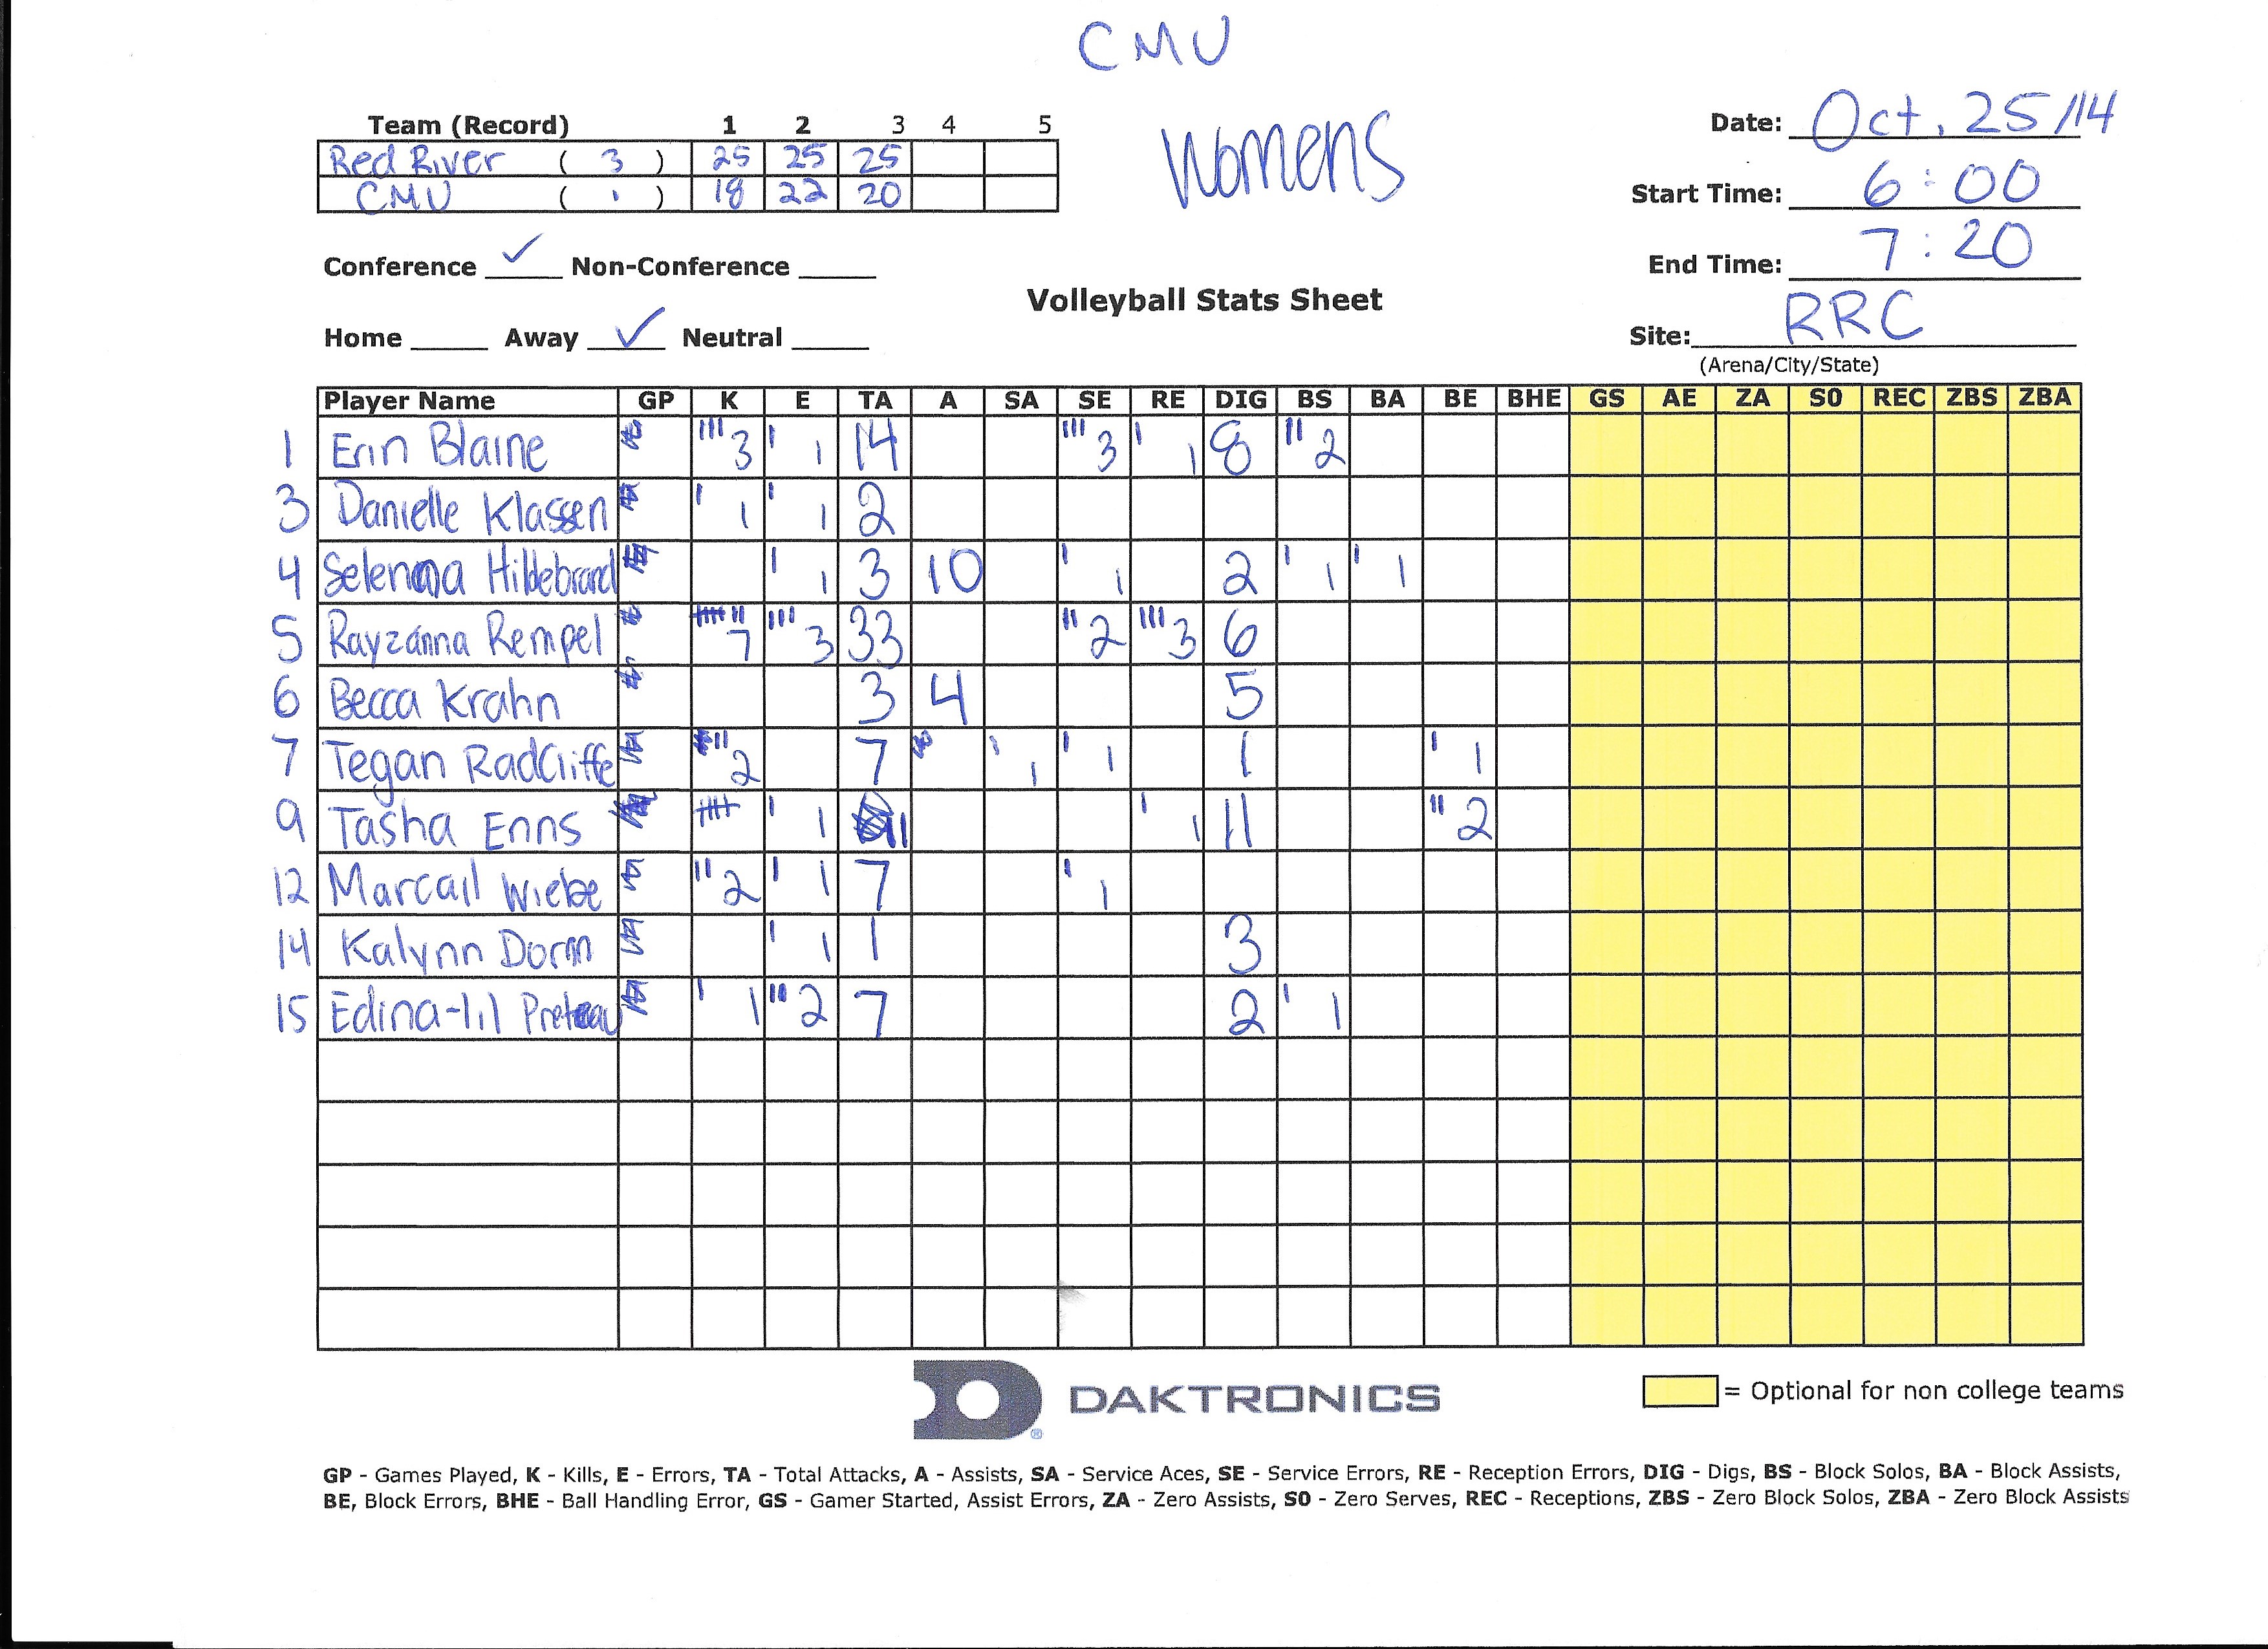 CMU
Womens
Team (Record) 1 2 3 4 5
Red River ( 3 ) 25 25 25
CMU ( ı ) 18 22 20
Date: Oct. 25/14
Start Time: 6:00
End Time: 7:20
Conference ✓ Non-Conference
Volleyball Stats Sheet
Home Away ✓ Neutral
Site: RRC
(Arena/City/State)
Player Name GP K E TA A SA SE RE DIG BS BA BE BHE GS AE ZA S0 REC ZBS ZBA
1 Erin Blaine 3 1 14 3 1 8 2
3 Danielle Klassen 1 1 2
4 Selenna Hildebrand 1 3 10 1 2 1 1
5 Rayzanna Rempel 7 3 33 2 3 6
6 Becca Krahn 3 4 5
7 Tegan Radcliffe 2 7 1 1 1 1
9 Tasha Enns 1 11 1 11 2
12 Marcail Wiebe 2 1 7 1
14 Kalynn Dorm 1 1 3
15 Edina-lil 1 2 7 2 1
DAKTRONICS
®
= Optional for non college teams
GP - Games Played, K - Kills, E - Errors, TA - Total Attacks, A - Assists, SA - Service Aces, SE - Service Errors, RE - Reception Errors, DIG - Digs, BS - Block Solos, BA - Block Assists,
BE, Block Errors, BHE - Ball Handling Error, GS - Gamer Started, Assist Errors, ZA - Zero Assists, S0 - Zero Serves, REC - Receptions, ZBS - Zero Block Solos, ZBA - Zero Block Assists